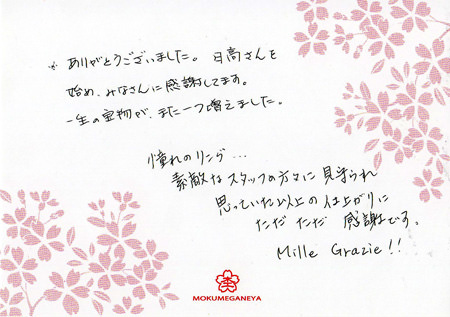 ありがとうございました。 日高さんを
始め、みなさんに感謝してます。
一生の宝物が、また一つ増えました。
憧れのリング…
素敵なスタッフの方々に見守られ
思っていた以上の仕上がりに
ただ ただ 感謝です。
Mille Grazie!!
MOKUMEGANEYA